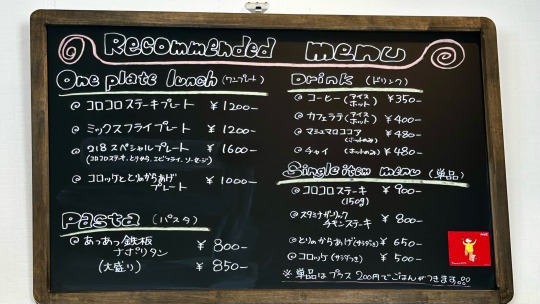 Recommended menu
One plate lunch (ワンプレート)
◎ コロコロステーキプレート ¥1200-
◎ ミックスフライプレート ¥1200-
◎ 218スペシャルプレート ¥1600-
(コロコロステーキ、とりから、エビフライ、ソーセージ)
◎ コロッケととりのからあげ
プレート ¥1000-
Pasta (パスタ)
◎ あつあつ鉄板
ナポリタン ¥800-
(大盛り) ¥850-
Drink (ドリンク)
◎ コーヒー (アイス ホット) ¥350-
◎ カフェラテ (アイス ホット) ¥400-
◎ マシュマロココア (ホットのみ) ¥480-
◎ チャイ (ホットのみ) ¥480-
Single item menu (単品)
◎ コロコロステーキ ¥900-
(150g)
◎ スタミナガーリック
チキンステーキ ¥800-
◎ とりのからあげ (サラダつき) ¥650-
◎ コロッケ (サラダつき) ¥500-
※ 単品はプラス200円でごはんがつきます。